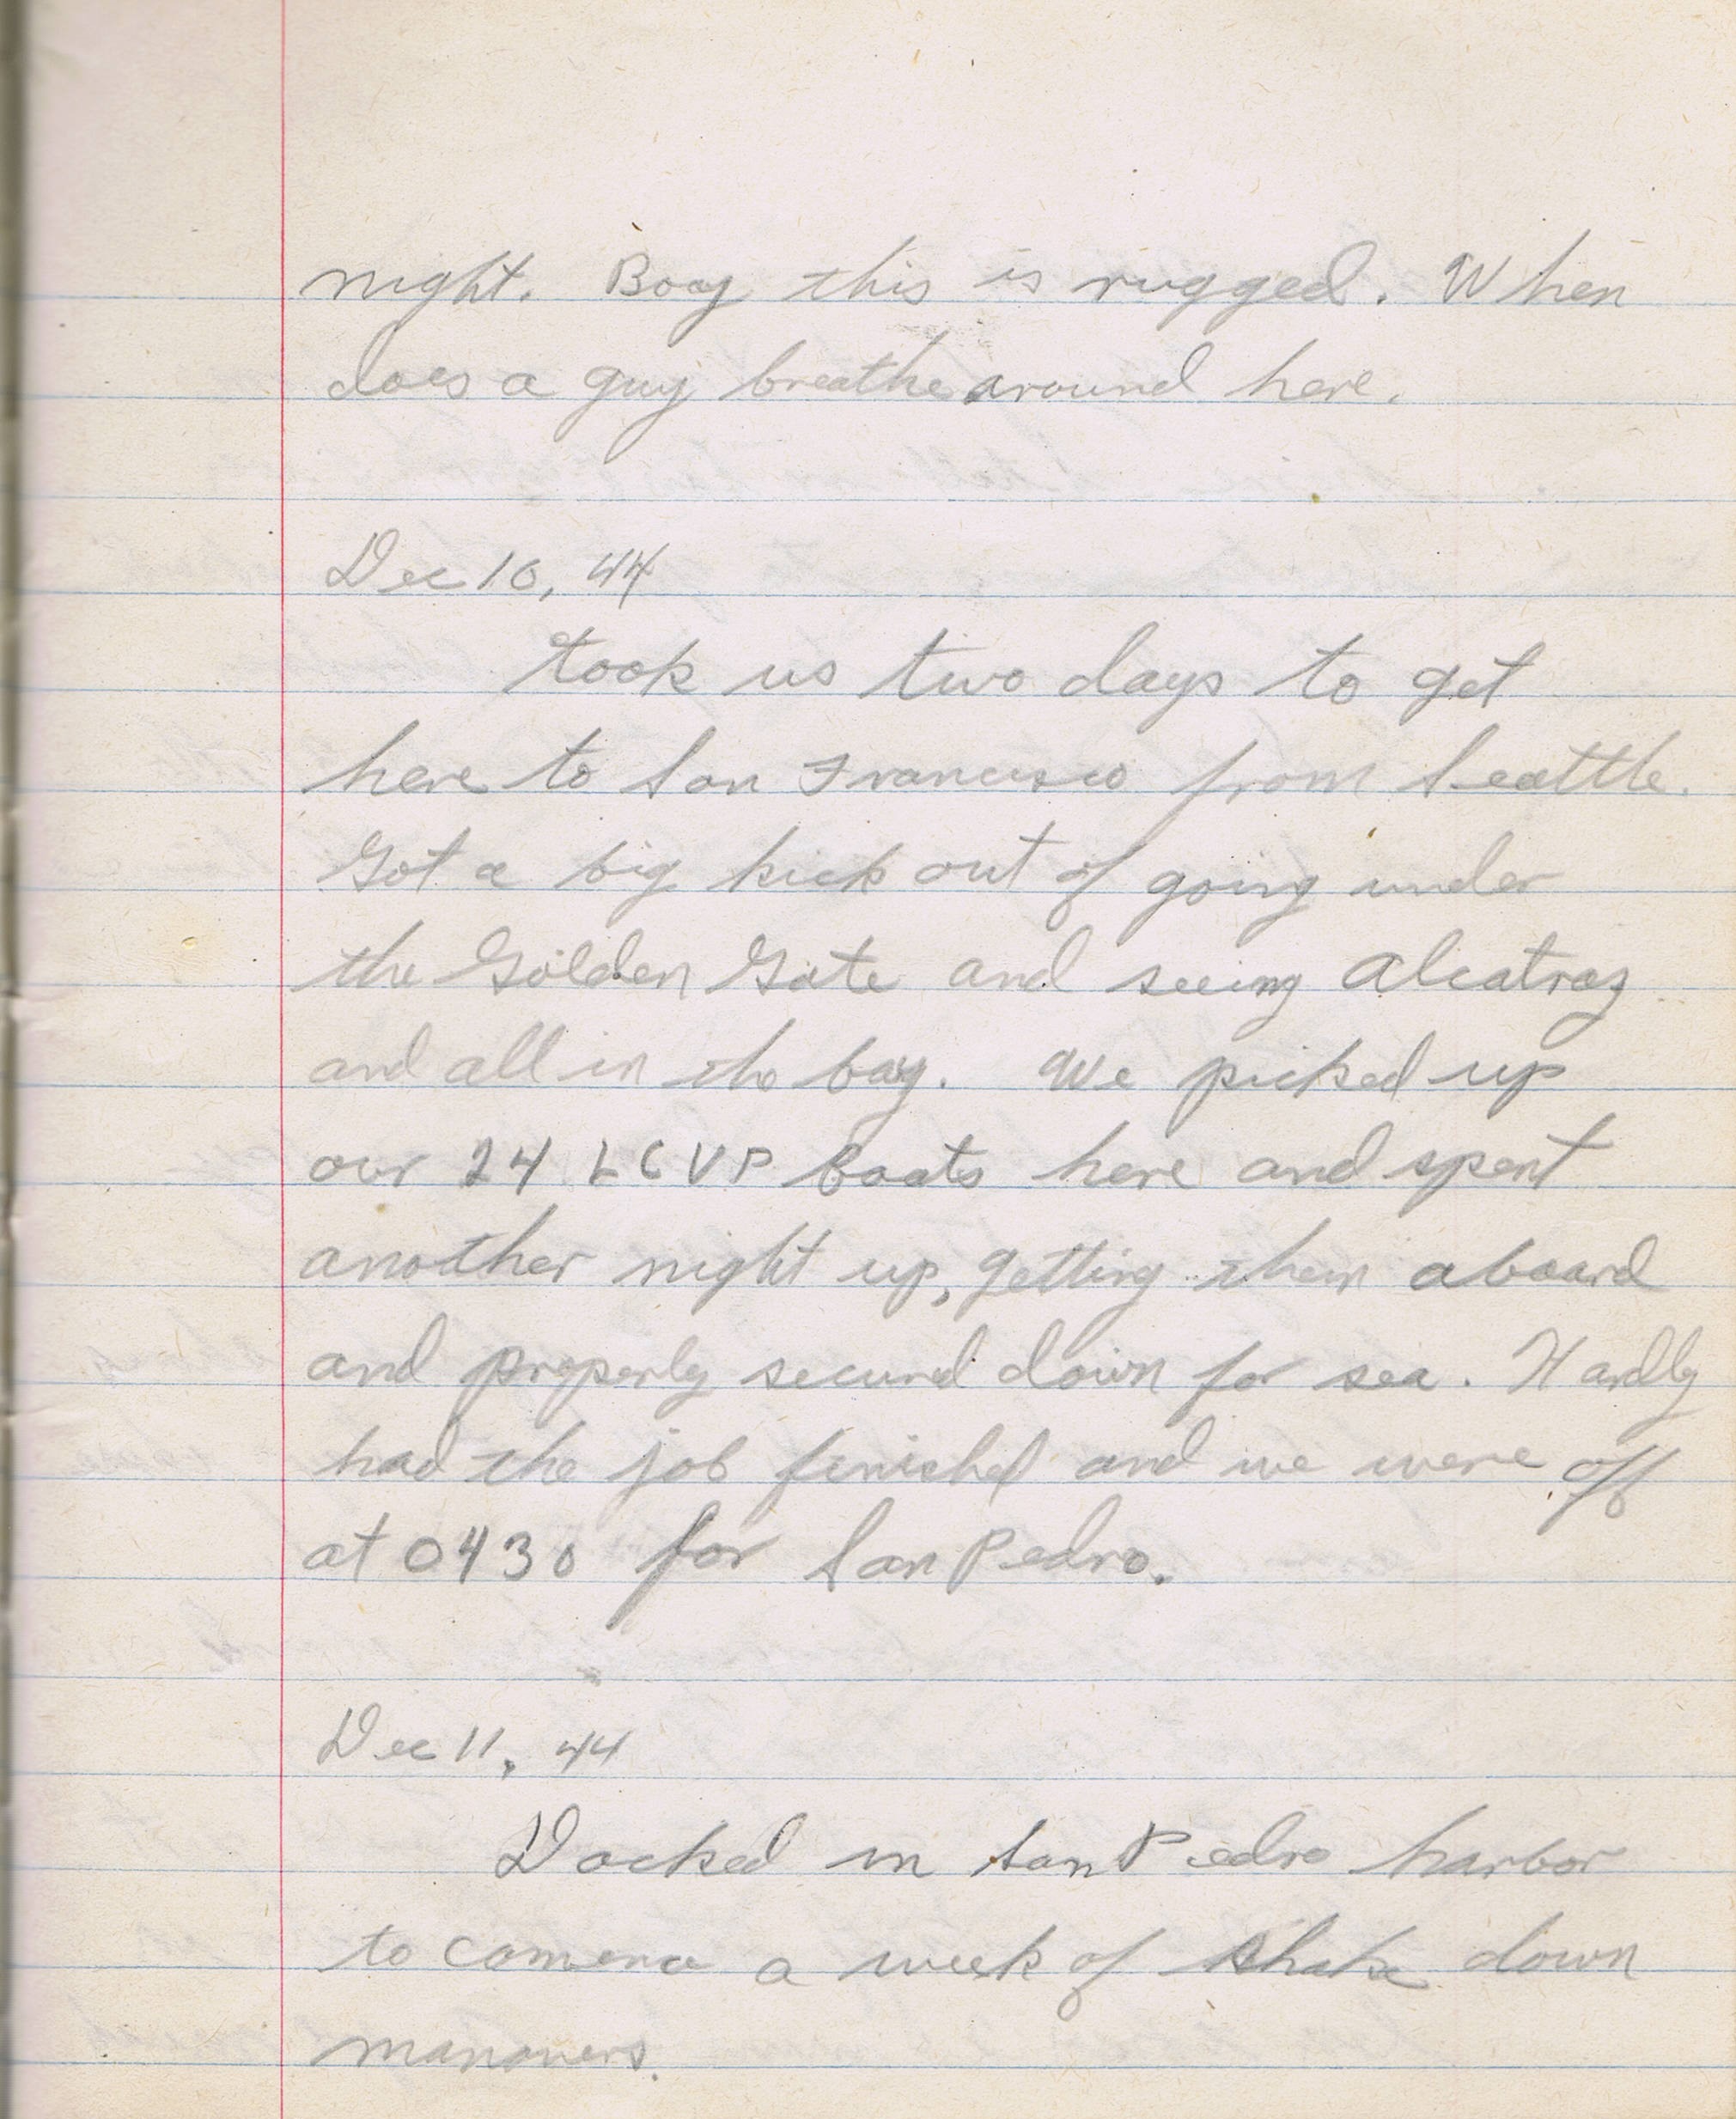 night. Boay this is rugged. When
does a guy breathe around here.
Dec 10, 44
Took us two days to get
here to San Francisco from Seattle.
Got a big kick out of going under
the Golden Gate and seeing Alcatraz
and all in the bay. We picked up
our 24 LCVP Boats here and spent
another night up, getting them aboard
and properly secured down for sea. Hardly
had the job finished and we were off
at 0430 for San Pedro.
Dec 11, 44
Docked in San Pedro harbor
to comence a week of shake down
manovers.